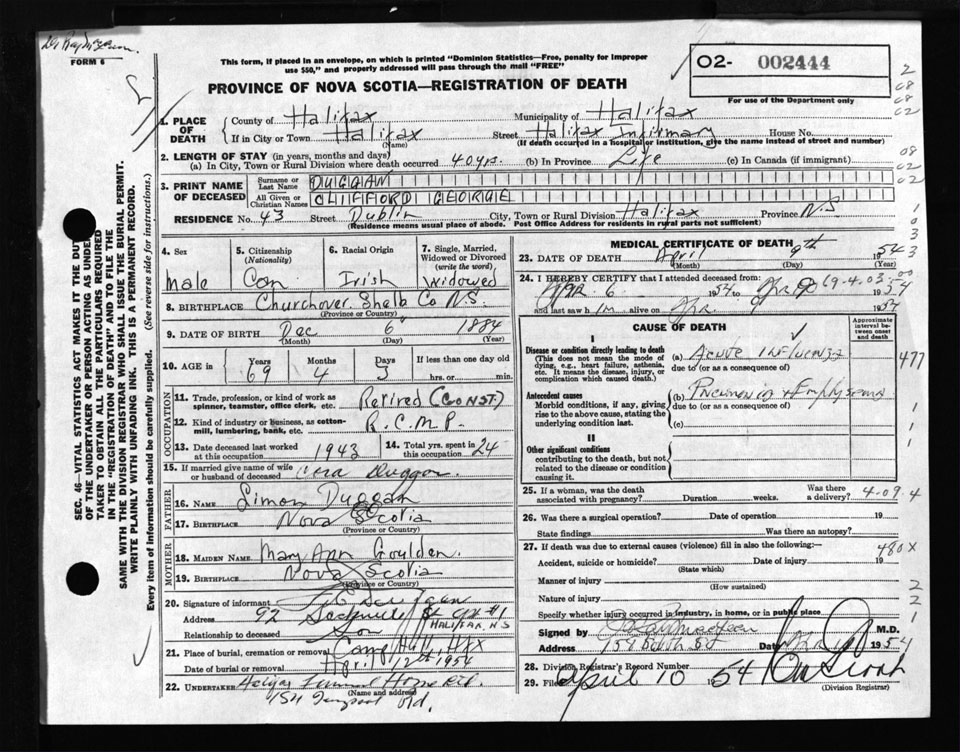 FORM 6
This form, if placed in an envelope, on which is printed "Dominion Statistics—Free, penalty for improper
use $50," and properly addressed will pass through the mail "FREE"
PROVINCE OF NOVA SCOTIA—REGISTRATION OF DEATH
O2- 002444
For use of the Department only
1. PLACE OF DEATH County of Halifax Municipality of Halifax
If in City or Town Halifax Street Halifax Infirmary House No.
(Name) (If death occurred in a hospital or institution, give the name instead of street and number)
2. LENGTH OF STAY (in years, months and days)
(a) In City, Town or Rural Division where death occurred 40 yrs. (b) In Province Life (c) In Canada (if immigrant)
3. PRINT NAME OF DECEASED Surname or Last Name DUGGAN
All Given or Christian Names CLIFFORD GEORGE
RESIDENCE No. 43 Street Dublin City, Town or Rural Division Halifax Province N.S
(Residence means usual place of abode. Post Office Address for residents in rural parts not sufficient)
4. Sex male
5. Citizenship (Nationality) Can
6. Racial Origin Irish
7. Single, Married, Widowed or Divorced (write the word) widowed
8. BIRTHPLACE Churchover Shelb Co N.S.
(Province or Country)
9. DATE OF BIRTH Dec 6 1884
(Month) (Day) (Year)
10. AGE in Years 69 Months 4 Days 3 If less than one day old hrs. or min.
OCCUPATION
11. Trade, profession, or kind of work as spinner, teamster, office clerk, etc. Retired (CONST.)
12. Kind of industry or business, as cotton-mill, lumbering, bank, etc. R.C.M.P.
13. Date deceased last worked at this occupation 1943 14. Total yrs. spent in this occupation 24
15. If married give name of wife or husband of deceased Duggan
FATHER
16. NAME Simon Duggan
17. BIRTHPLACE Nova Scotia
(Province or Country)
MOTHER
18. MAIDEN NAME Mary Ann Goulden
19. BIRTHPLACE Nova Scotia
(Province or Country)
20. Signature of informant
Address 92 Sackville St Apt #1
HALIFAX, N.S
Relationship to deceased Son
21. Place of burial, cremation or removal Camp Hill, Hfx
Date of burial or removal April 12th 1954
22. UNDERTAKER Funeral Home Ltd.
(Name and address)
MEDICAL CERTIFICATE OF DEATH
23. DATE OF DEATH April 9th 1954
(Month) (Day) (Year)
24. I HEREBY CERTIFY that I attended deceased from
Apr. 6 1954 to Apr 9 1954
and last saw him alive on Apr. 9 1954
69-4-03-00
CAUSE OF DEATH
Approximate interval between onset and death
I
Disease or condition directly leading to death (a) Acute influenza
(This does not mean the mode of dying, e.g., heart failure, asthenia, etc. It means the disease, injury, or complication which caused death.)
due to (or as a consequence of)
Antecedent causes (b) Pneumonia + Emphysema
Morbid conditions, if any, giving rise to the above cause, stating the underlying condition last.
due to (or as a consequence of)
(c)
II
Other significant conditions
contributing to the death, but not related to the disease or condition causing it.
25. If a woman, was the death associated with pregnancy? Duration weeks. Was there a delivery?
4-09.4
26. Was there a surgical operation? Date of operation 19
State findings Was there an autopsy?
27. If death was due to external causes (violence) fill in also the following: 480X
Accident, suicide or homicide? Date of injury 19
(State which)
Manner of injury
(How sustained)
Nature of injury
Specify whether injury occurred in industry, in home, or in public place
Signed by M.D.
Address Date 1954
28. Division Registrar's Record Number
29. Filed April 10 1954
(Division Registrar)
SEC. 46—VITAL STATISTICS ACT MAKES IT THE DUTY
OF THE UNDERTAKER OR PERSON ACTING AS UNDER-
TAKER TO OBTAIN ALL THE PARTICULARS REQUIRED
IN THE "REGISTRATION OF DEATH" AND TO FILE THE
SAME WITH THE DIVISION REGISTRAR WHO SHALL ISSUE THE BURIAL PERMIT.
WRITE PLAINLY WITH UNFADING INK. THIS IS A PERMANENT RECORD.
Every item of information should be carefully supplied. (See reverse side for instructions.)